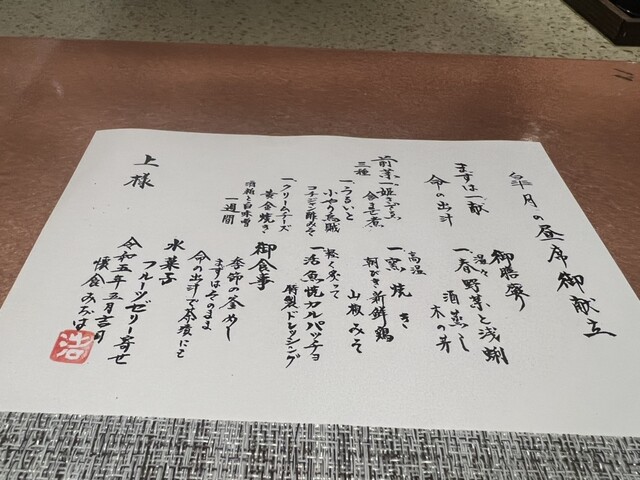 皐月の昼席御献立
まずは一献
命の出汁
前菜三種
一、姫さざえ
含ませ煮
一、うるいと
小やり烏賊
コチジャン酢みそ
一、クリームチーズ
黄金焼き
酒粕と白味噌
一週間
御膳寄り
温々
一、春野菜と浅蜊
酒蒸し
木の芽
高温
一、窯焼き
朝びき新鮮鶏
山椒みそ
軽く炙って
一、活魚焼カルパッチョ
特製ドレッシング
御食事
季節の釜めし
まずはそのまま
命の出汁で茶漬にて
水菓子
フルーツゼリー寄せ
令和五年五月吉日
懐食みちば
上様
浩